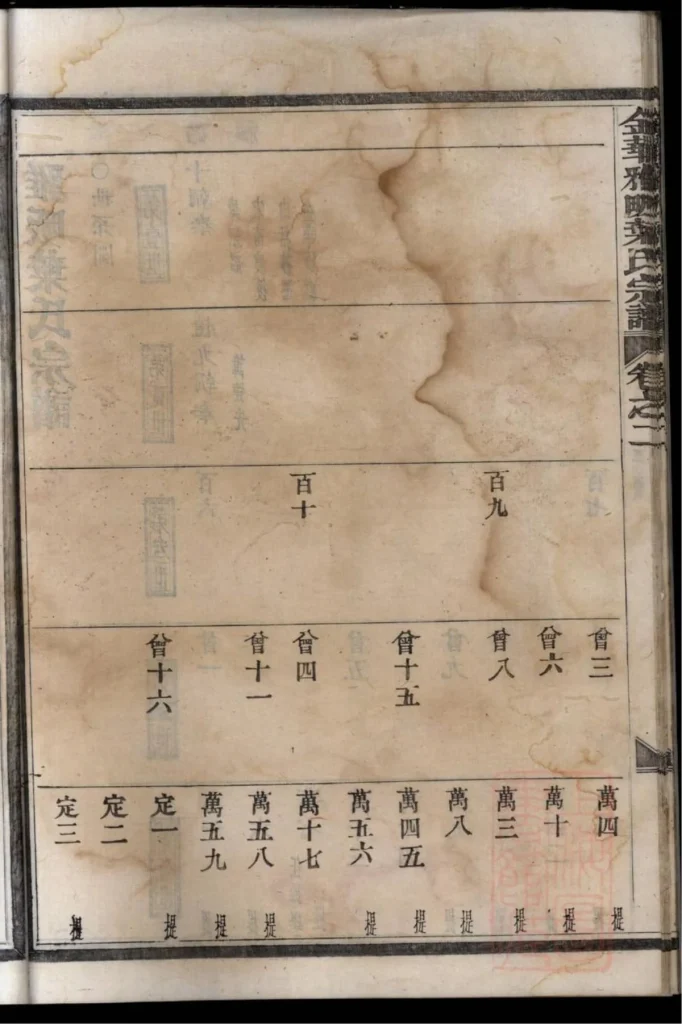 金華雅畈葉氏宗譜
卷之二
百九
百十
曾三
曾六
曾八
曾十五
曾四
曾十一
曾十六
萬四
萬十
萬三
萬八
萬四五
萬五六
萬十七
萬五八
萬五九
定一
定二
定三
提
提
提
提
提
提
提
提
提
提